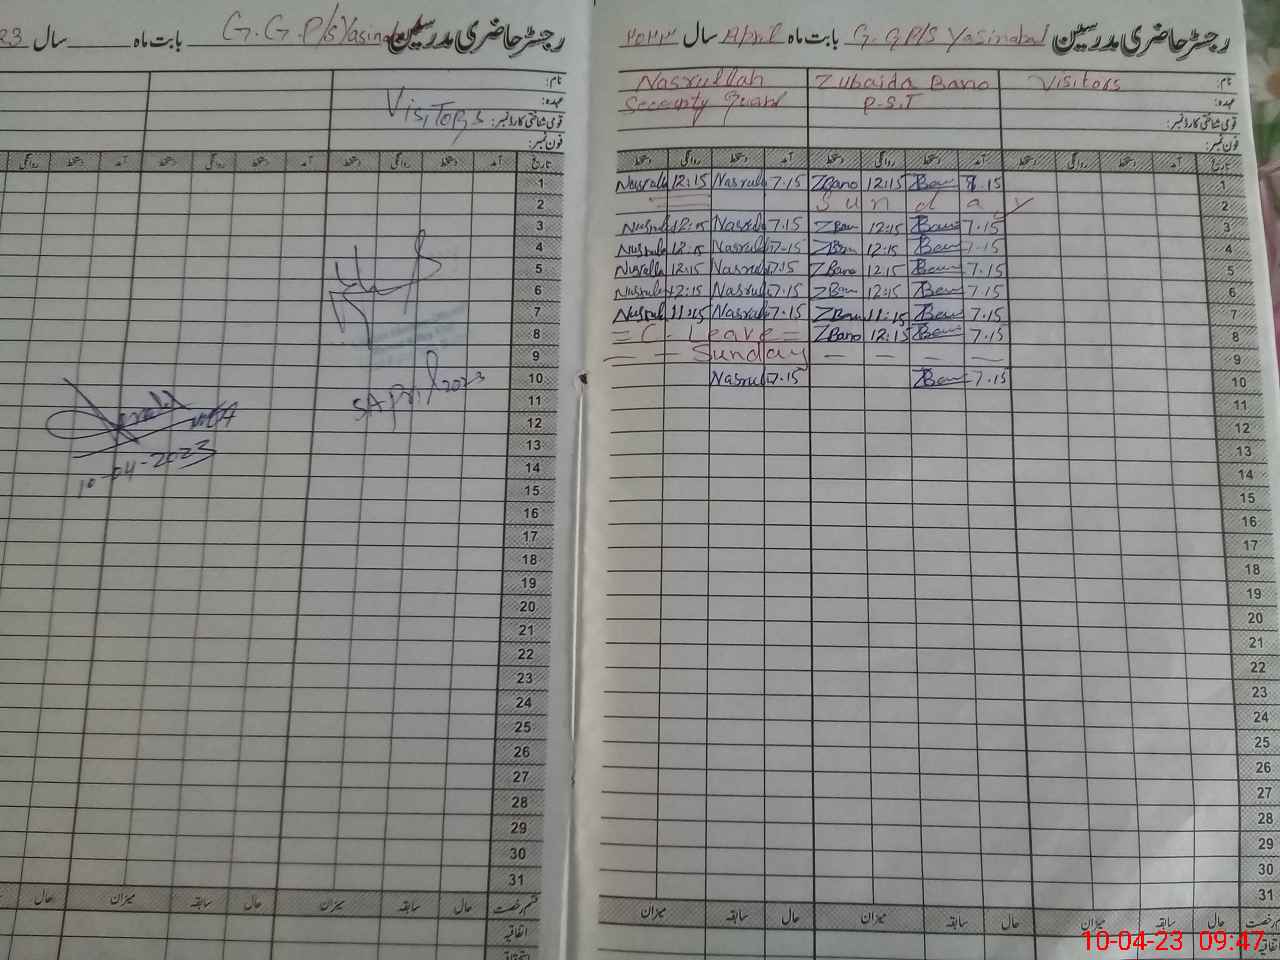 رجسٹر حاضری مدرسین G.GP/S Yasinabad بابت ماہ April سال ۲۰۲۳
نام: Visitors Zubaida Bano Nasrullah
عہدہ: P.S.T Security Guard
قومی شناختی کارڈ نمبر:
فون نمبر:
تاریخ آمد دستخط روانگی دستخط آمد دستخط روانگی دستخط آمد دستخط روانگی دستخط
1 7.15 ZBano 12:15 ZBano 7.15 Nasrull 12:15 Nasrull
2 Sunday
3 7.15 ZBano 12:15 ZBano 7.15 Nasrull 12:15 Nasrull
4 7.15 ZBano 12:15 ZBano 7.15 Nasrull 12:15 Nasrull
5 7.15 ZBano 12:15 ZBano 7.15 Nasrull 12:15 Nasrull
6 7.15 ZBano 12:15 ZBano 7.15 Nasrull 12:15 Nasrull
7 7.15 ZBano 11:15 ZBano 7.15 Nasrull 11:15 Nasrull
8 7.15 ZBano 12:15 ZBano = C. Leave =
9 Sunday
10 7.15 ZBano 7.15 Nasrull
11
12
13
14
15
16
17
18
19
20
21
22
23
24
25
26
27
28
29
30
31
حال سابقہ میزان حال سابقہ میزان حال سابقہ میزان
10-04-23 09:47
رجسٹر حاضری مدرسین G.G.P/S Yasinabad بابت ماہ سال 23
نام:
عہدہ: Visitors
قومی شناختی کارڈ نمبر:
فون نمبر:
تاریخ آمد دستخط روانگی دستخط آمد دستخط روانگی دستخط آمد دستخط روانگی
1
2
3
4
5
6
7
8
9
10
5 April 2023
11
12
13
10-04-2023
14
15
16
17
18
19
20
21
22
23
24
25
26
27
28
29
30
31
قسم رخصت حال سابقہ میزان حال سابقہ میزان حال
اتفاقیہ